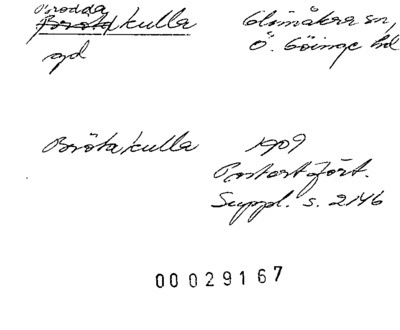 Brodda
Brötakulla Glimåkra sn,
gd Ö. Göinge hd
Brötakulla 1909
Postortfört.
Suppl. s. 2146
00029167